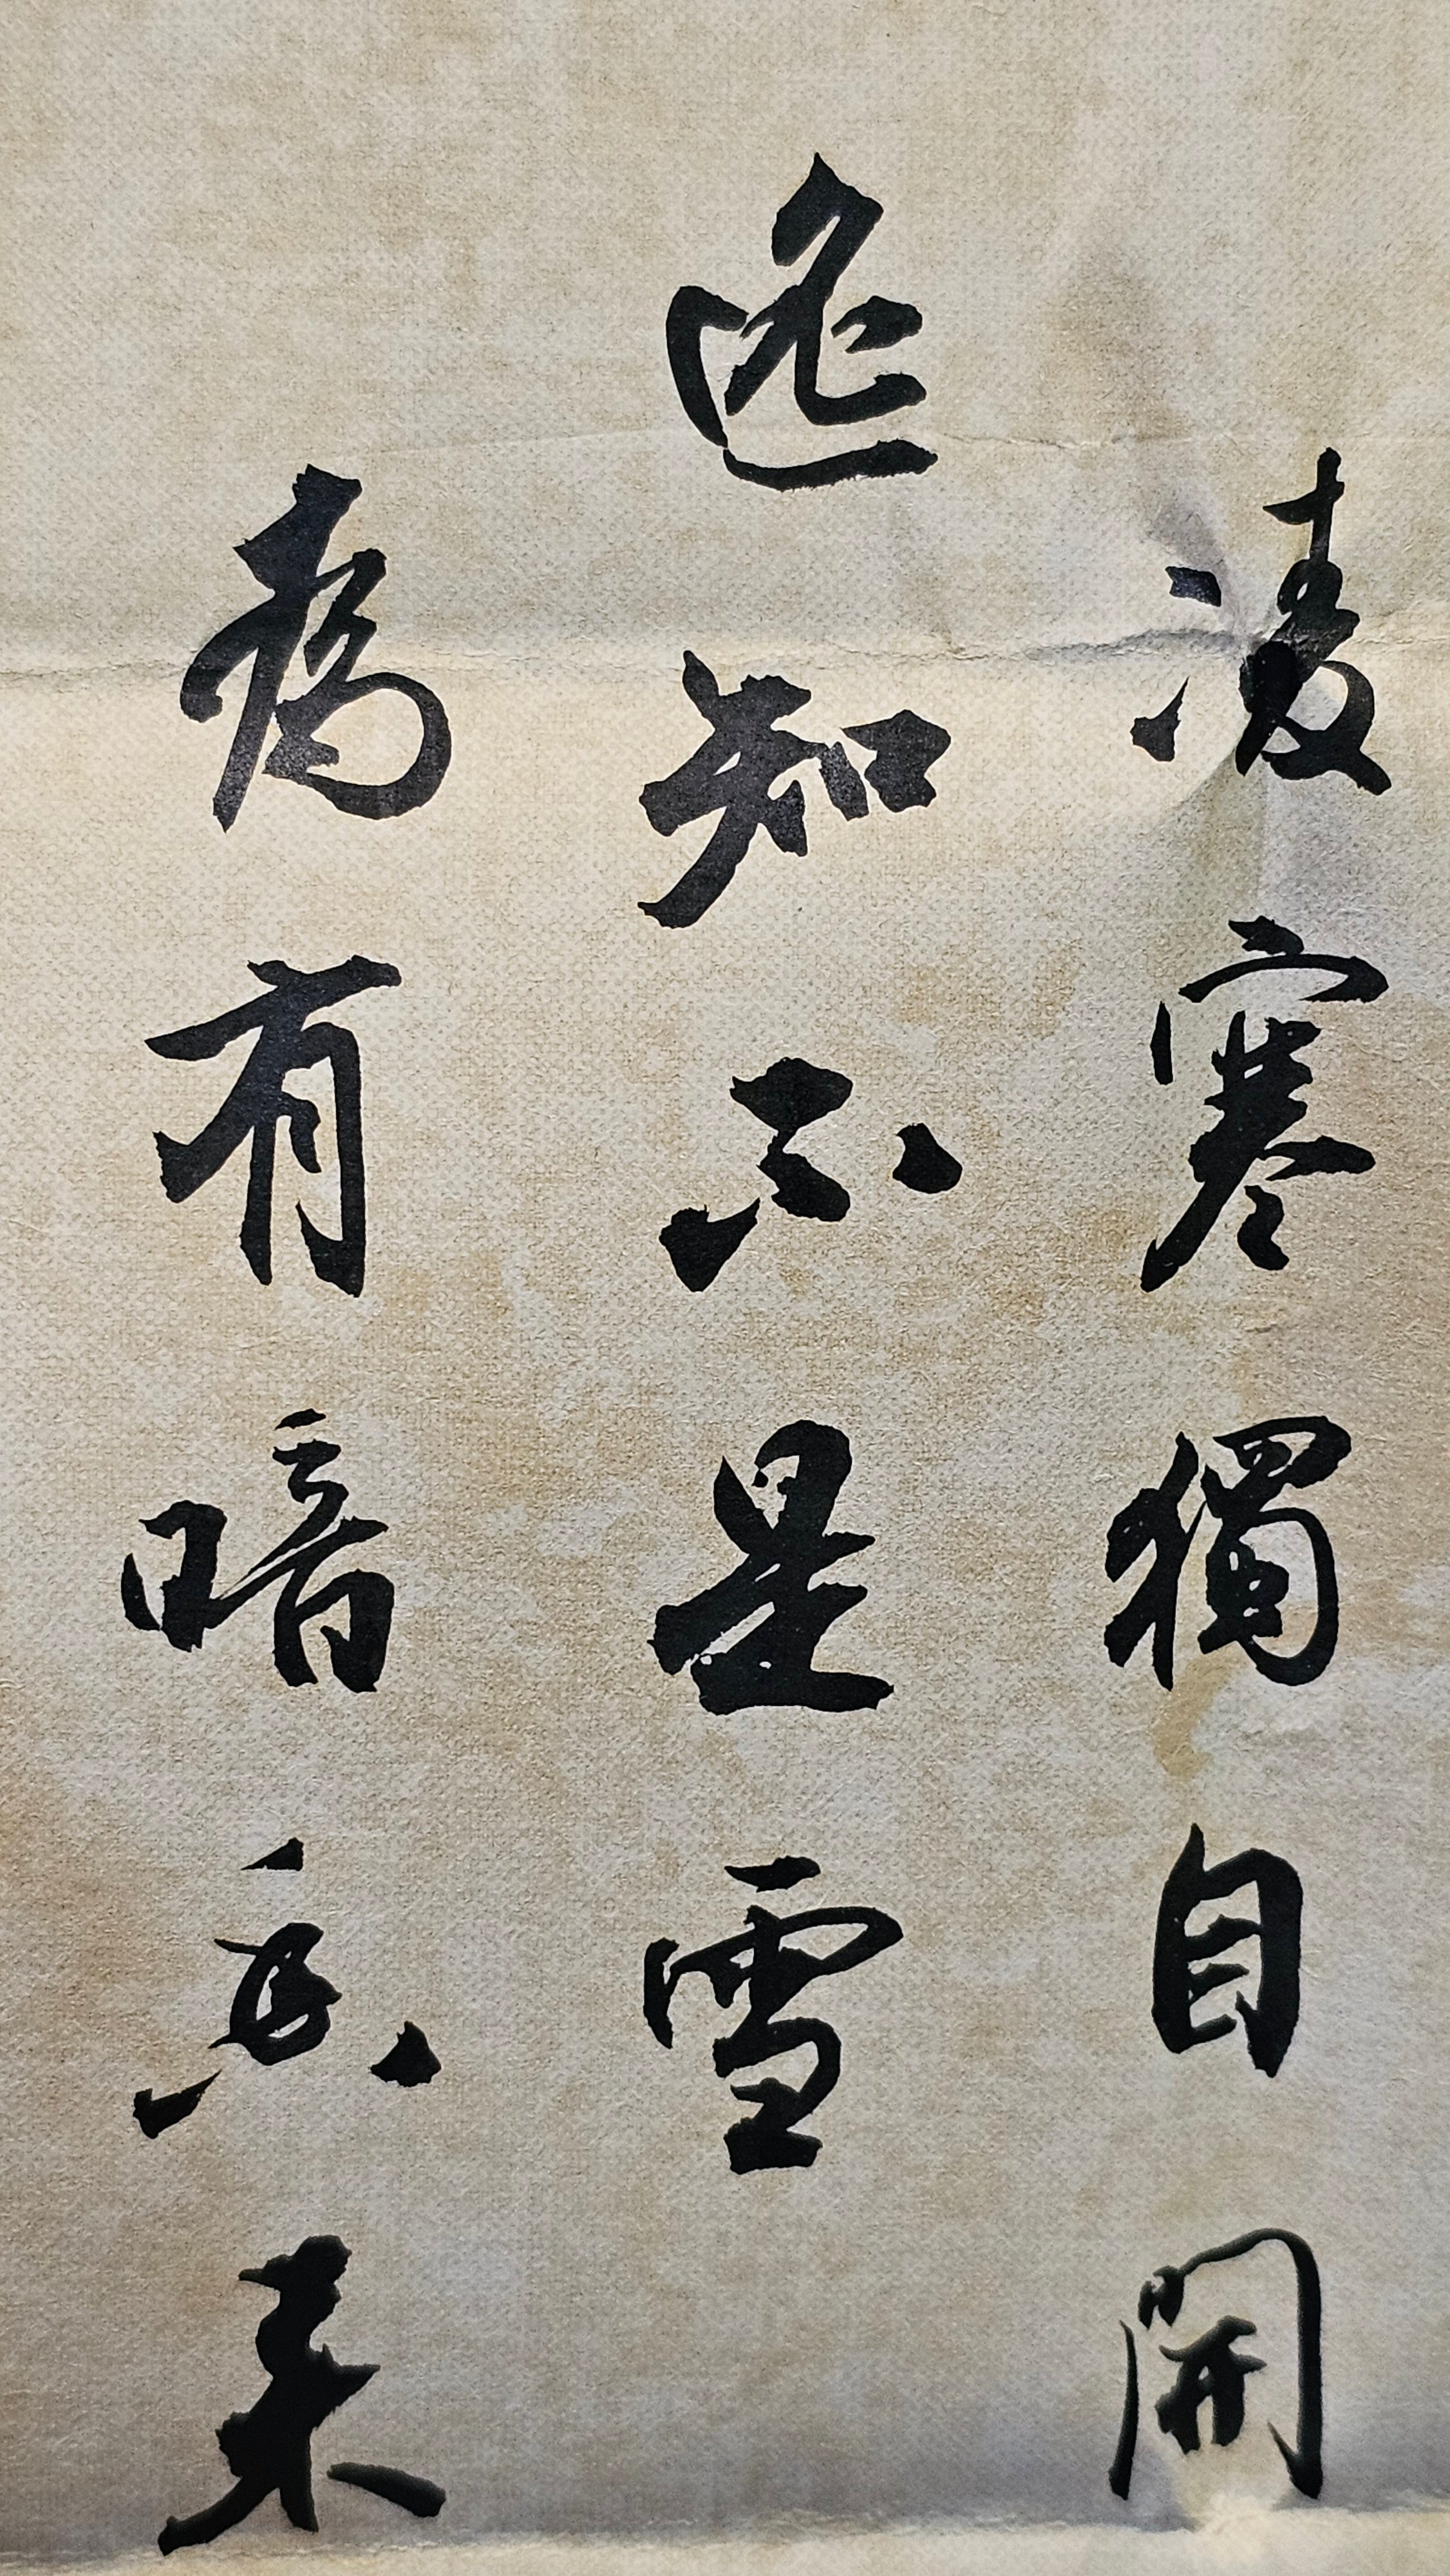 凌寒獨自開
遥知不是雪
為有暗香来